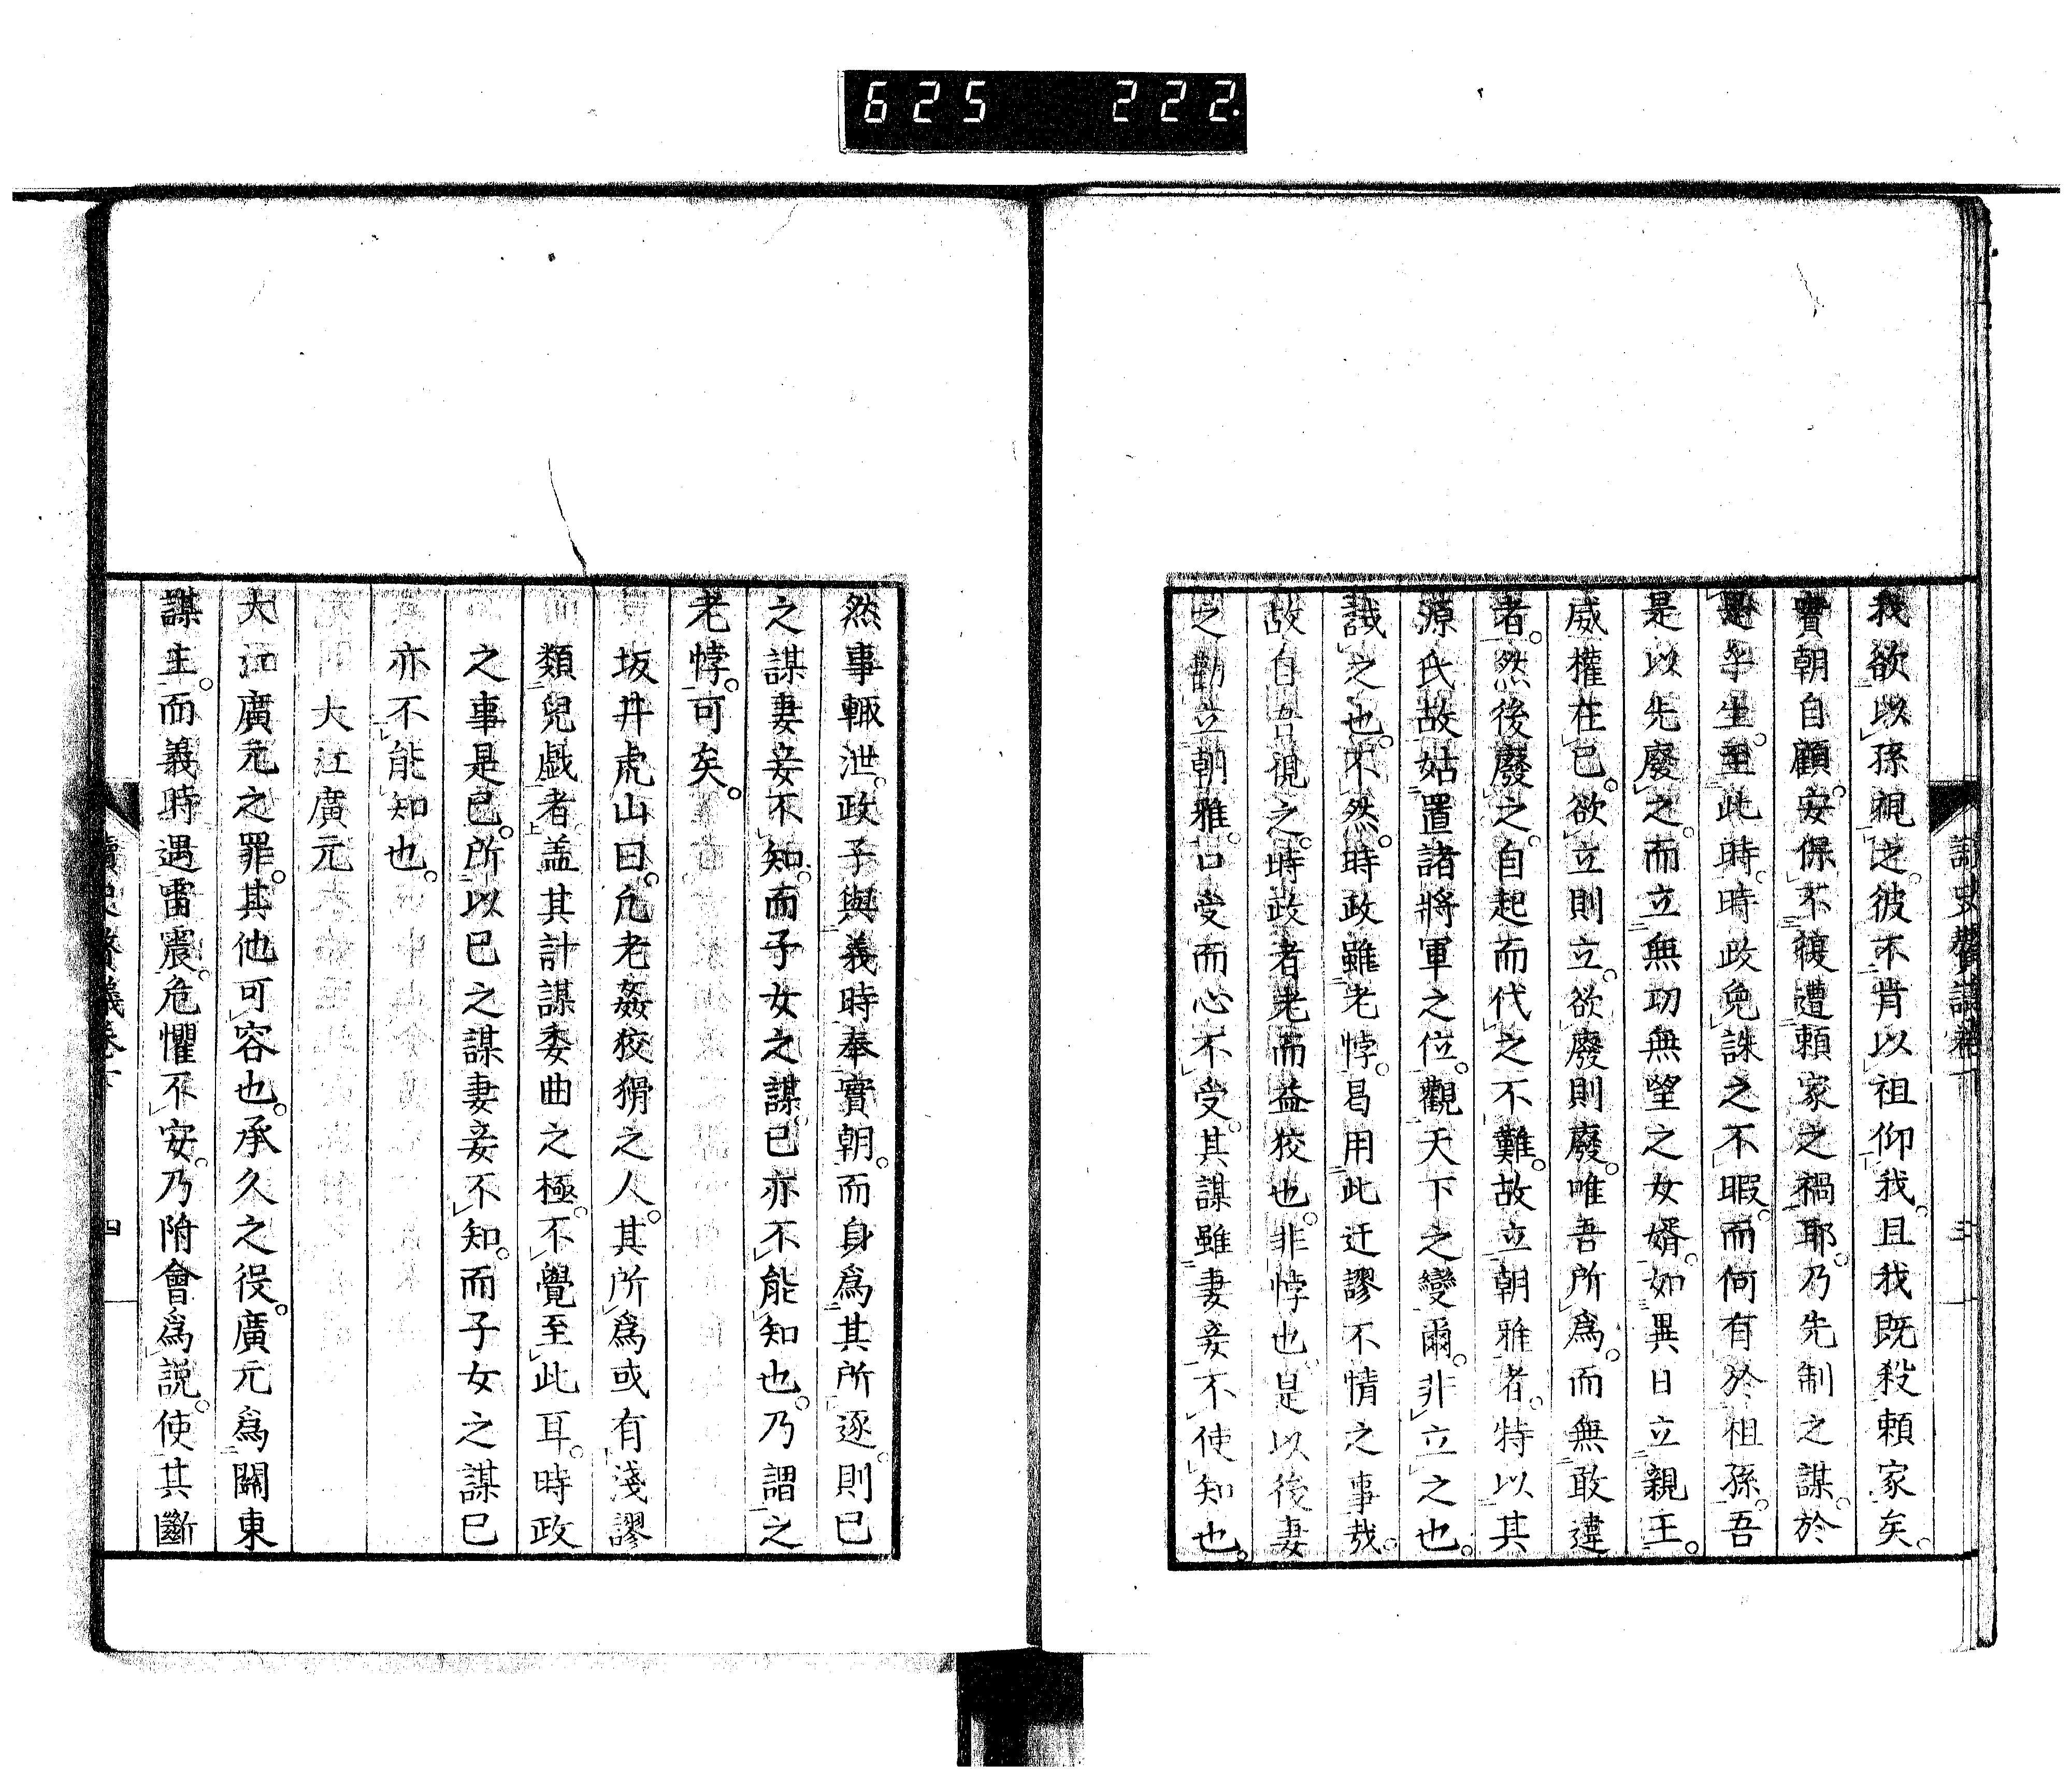 625 222.
讀史贅議卷下 三
我欲以孫視之。彼不肯以祖仰我。且我既殺頼家矣。
實朝自顧。安保不複遭頼家之禍耶。乃先制之謀。於
是乎生。至此時。時政免誅之不暇。而何有於祖孫。吾
是以先廢之。而立無功無望之女婿。如異日立親王。
威權在己。欲立則立。欲廢則廢。唯吾所爲。而無敢違
者。然後廢之。自起而代之不難。故立朝雅者。特以其
源氏故姑置諸將軍之位。觀天下之變爾。非立之也。
誠之也。不然。時政雖老悖。曷用此迂謬不情之事哉。
故自吾視之。時政者老而益狡也。非悖也。是以後妻
之勸立朝雅。口受而心不受。其謀雖妻妾不使知也。
然事輙泄。政子與義時奉實朝。而身爲其所逐。則已
之謀妻妾不知。而子女之謀。已亦不能知也。乃謂之
老悖。可矣。
坂井虎山曰。凢老姦狡猾之人。其所爲或有淺謬
類兒戯者。盖其計謀委曲之極。不覺至此耳。時政
之事是已。所以已之謀妻妾不知。而子女之謀已
亦不能知也。
大江廣元
大江廣元之罪。其他可容也。承久之役。廣元爲關東
謀主。而義時遇雷震。危懼不安。乃附會爲説。使其斷
讀史贅議卷下 四